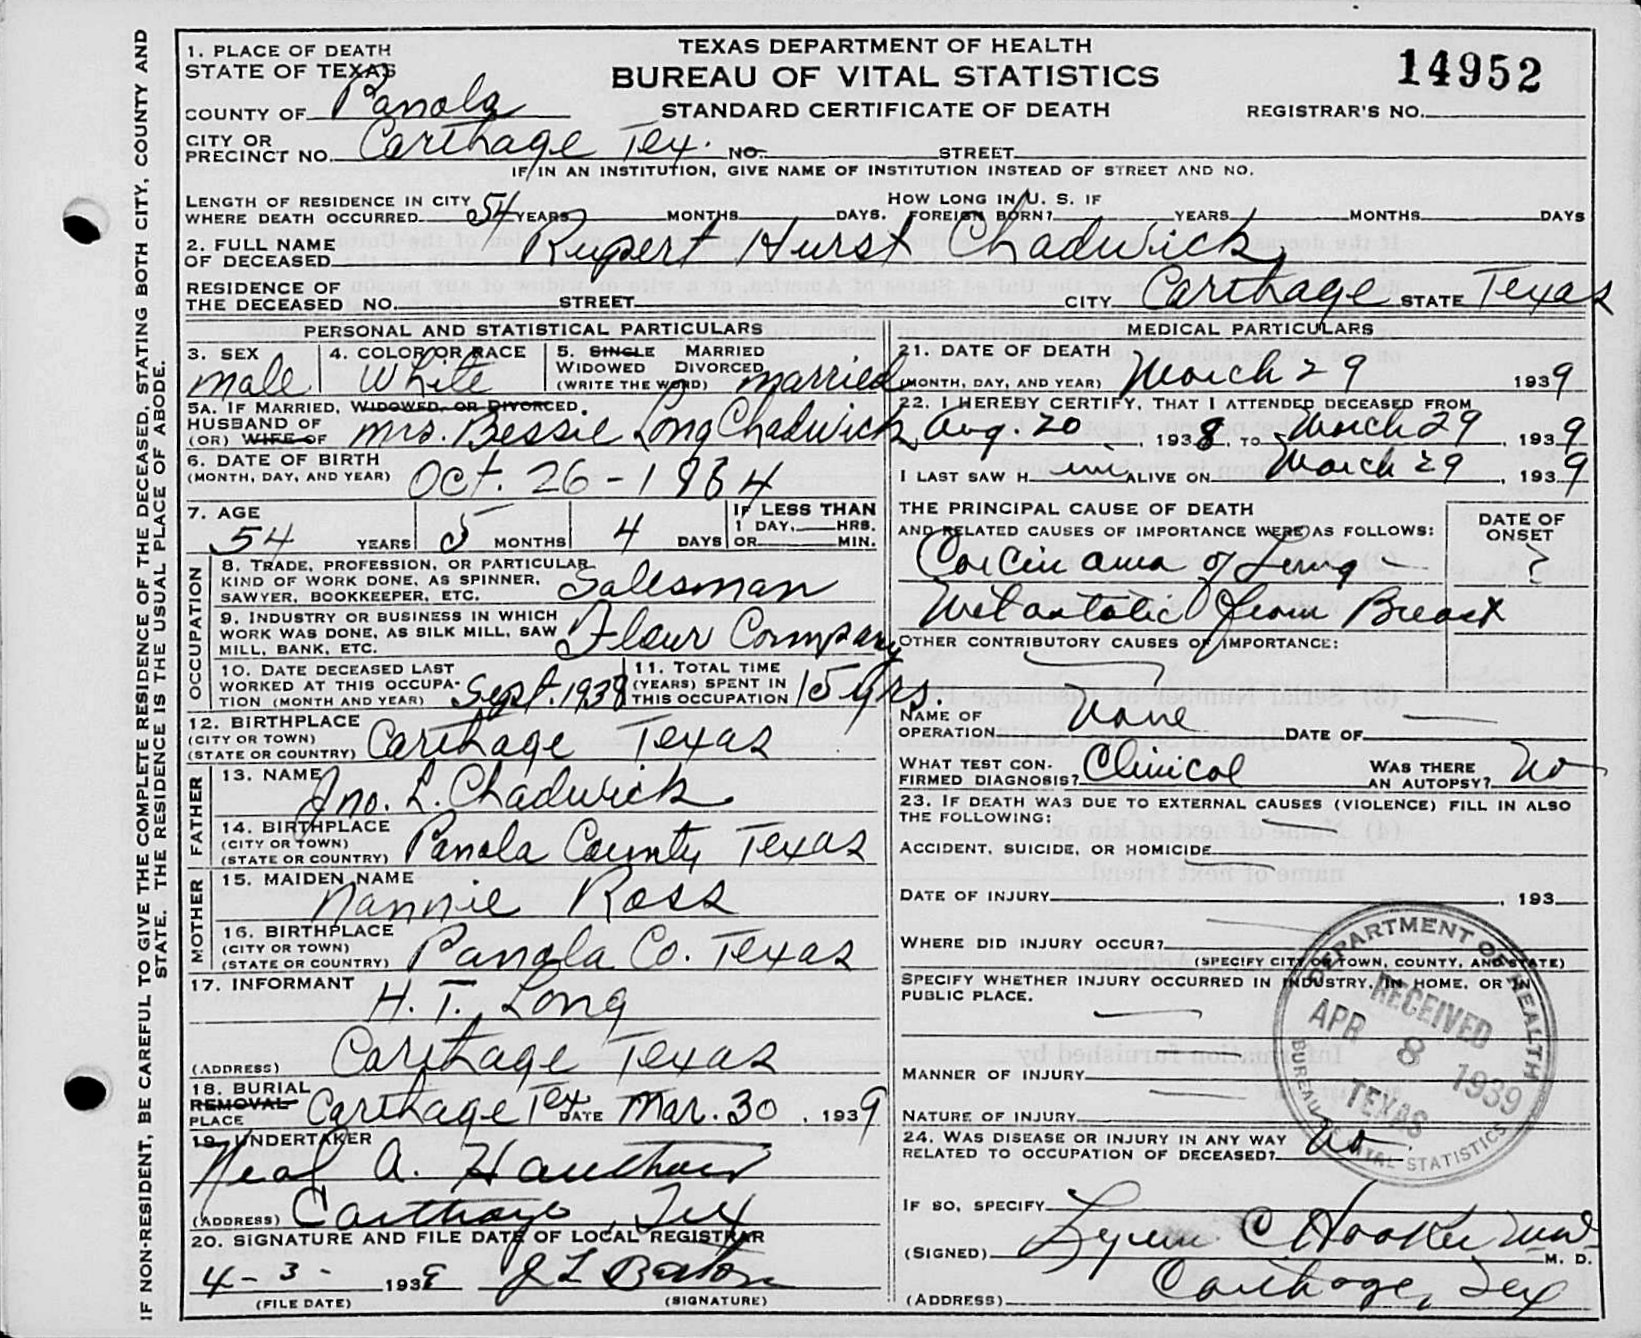 IF NON-RESIDENT, BE CAREFUL TO GIVE THE COMPLETE RESIDENCE OF THE DECEASED, STATING BOTH CITY, COUNTY AND
STATE. THE RESIDENCE IS THE USUAL PLACE OF ABODE.
TEXAS DEPARTMENT OF HEALTH
BUREAU OF VITAL STATISTICS
STANDARD CERTIFICATE OF DEATH
14952
REGISTRAR'S NO.
1. PLACE OF DEATH
STATE OF TEXAS
COUNTY OF Panola
CITY OR
PRECINCT NO. Carthage Tex. NO. STREET
IF IN AN INSTITUTION, GIVE NAME OF INSTITUTION INSTEAD OF STREET AND NO.
LENGTH OF RESIDENCE IN CITY HOW LONG IN U. S. IF
WHERE DEATH OCCURRED 54 YEARS MONTHS DAYS. FOREIGN BORN? YEARS MONTHS DAYS
2. FULL NAME
OF DECEASED Rupert Hurst Chadwick,
RESIDENCE OF
THE DECEASED NO. STREET CITY Carthage STATE Texas
PERSONAL AND STATISTICAL PARTICULARS
3. SEX male
4. COLOR OR RACE White
5. SINGLE MARRIED
WIDOWED DIVORCED
(WRITE THE WORD) married
5A. IF MARRIED, WIDOWED, OR DIVORCED,
HUSBAND OF
(OR) WIFE OF Mrs. Bessie Long Chadwick
6. DATE OF BIRTH
(MONTH, DAY, AND YEAR) Oct. 26-1884
7. AGE IF LESS THAN
1 DAY, HRS.
54 YEARS 5 MONTHS 4 DAYS OR MIN.
OCCUPATION
8. TRADE, PROFESSION, OR PARTICULAR
KIND OF WORK DONE, AS SPINNER,
SAWYER, BOOKKEEPER, ETC. Salesman
9. INDUSTRY OR BUSINESS IN WHICH
WORK WAS DONE, AS SILK MILL, SAW
MILL, BANK, ETC. Flour Company
10. DATE DECEASED LAST
WORKED AT THIS OCCUPA-
TION (MONTH AND YEAR) Sept. 1938
11. TOTAL TIME
(YEARS) SPENT IN
THIS OCCUPATION 15 yrs.
12. BIRTHPLACE
(CITY OR TOWN)
(STATE OR COUNTRY) Carthage Texas
FATHER
13. NAME Jno. L. Chadwick
14. BIRTHPLACE
(CITY OR TOWN)
(STATE OR COUNTRY) Panola County Texas
MOTHER
15. MAIDEN NAME Nannie Ross
16. BIRTHPLACE
(CITY OR TOWN)
(STATE OR COUNTRY) Panola Co. Texas
17. INFORMANT H. T. Long
(ADDRESS) Carthage Texas
18. BURIAL
REMOVAL
PLACE Carthage Tex DATE Mar. 30, 1939
19. UNDERTAKER
Neal A. Hawthorn
(ADDRESS) Carthage, Tex
20. SIGNATURE AND FILE DATE OF LOCAL REGISTRAR
4-3- 1939
(FILE DATE) (SIGNATURE)
MEDICAL PARTICULARS
21. DATE OF DEATH
(MONTH, DAY, AND YEAR) March 29 1939
22. I HEREBY CERTIFY, THAT I ATTENDED DECEASED FROM
Aug. 20, 1938, TO March 29, 1939
I LAST SAW H im ALIVE ON March 29, 1939
THE PRINCIPAL CAUSE OF DEATH
AND RELATED CAUSES OF IMPORTANCE WERE AS FOLLOWS:
DATE OF
ONSET
Carcinoma of Lung ?
Metastatic from Breast
OTHER CONTRIBUTORY CAUSES OF IMPORTANCE:
NAME OF
OPERATION None DATE OF
WHAT TEST CON-
FIRMED DIAGNOSIS? Clinical
WAS THERE
AN AUTOPSY? no
23. IF DEATH WAS DUE TO EXTERNAL CAUSES (VIOLENCE) FILL IN ALSO
THE FOLLOWING:
ACCIDENT, SUICIDE, OR HOMICIDE
DATE OF INJURY , 193
WHERE DID INJURY OCCUR?
(SPECIFY CITY OR TOWN, COUNTY, AND STATE)
SPECIFY WHETHER INJURY OCCURRED IN INDUSTRY, IN HOME, OR IN
PUBLIC PLACE.
MANNER OF INJURY
NATURE OF INJURY
24. WAS DISEASE OR INJURY IN ANY WAY
RELATED TO OCCUPATION OF DECEASED? no
IF SO, SPECIFY
(SIGNED) C Hooker M. D.
(ADDRESS) Carthage, Tex
DEPARTMENT OF HEALTH
RECEIVED
APR 8 1939
TEXAS
BUREAU OF VITAL STATISTICS